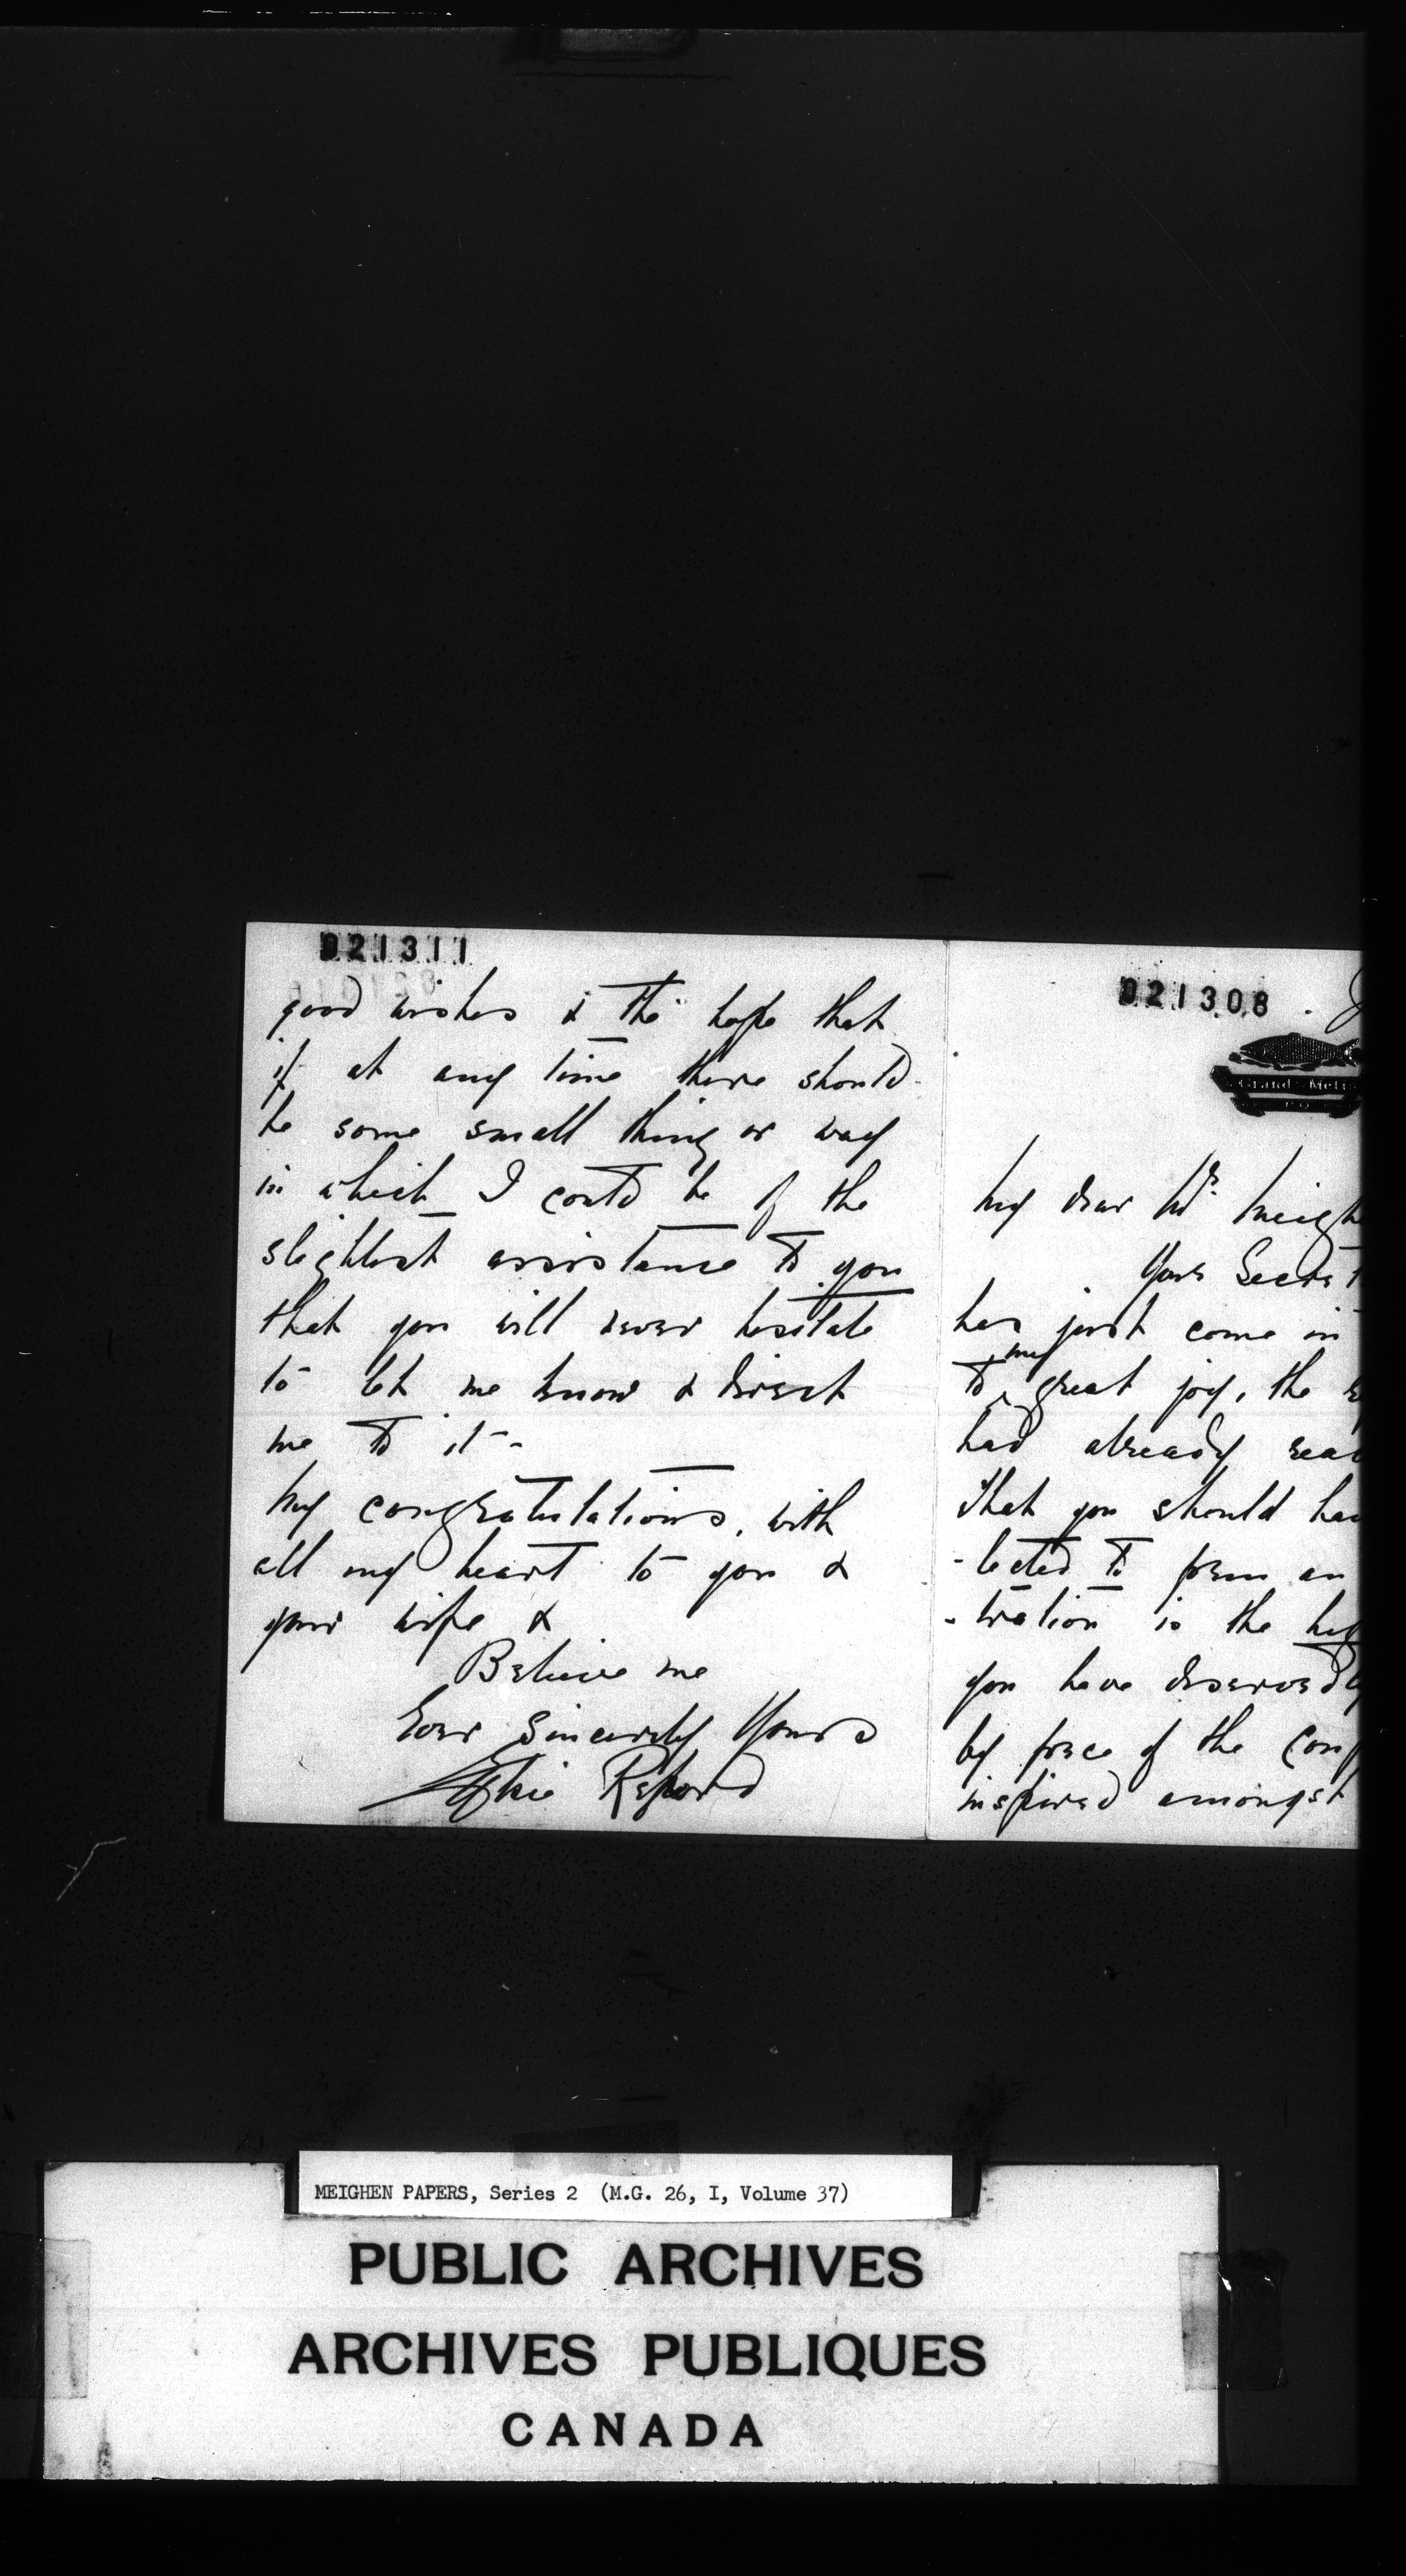 021311
good wishes & the hope that
if at any time there should
be some small thing or way
in which I could be of the
slightest assistance to you
that you will never hesitate
to let me know & direct
me to it -
My congratulations, with
all my heart to you &
your wife &
Believe me
Ever Sincerely Yours
Elsie Reford
021308
Grand-Metis
My dear Mr. Meigh
Your Secret
has just come in
to my great joy, the
had already reac
that you should hav
-lected to form an
-tration is the
you have deservedly
by force of the conf
inspired amongst
MEIGHEN PAPERS, Series 2 (M.G. 26, I, Volume 37)
PUBLIC ARCHIVES
ARCHIVES PUBLIQUES
CANADA